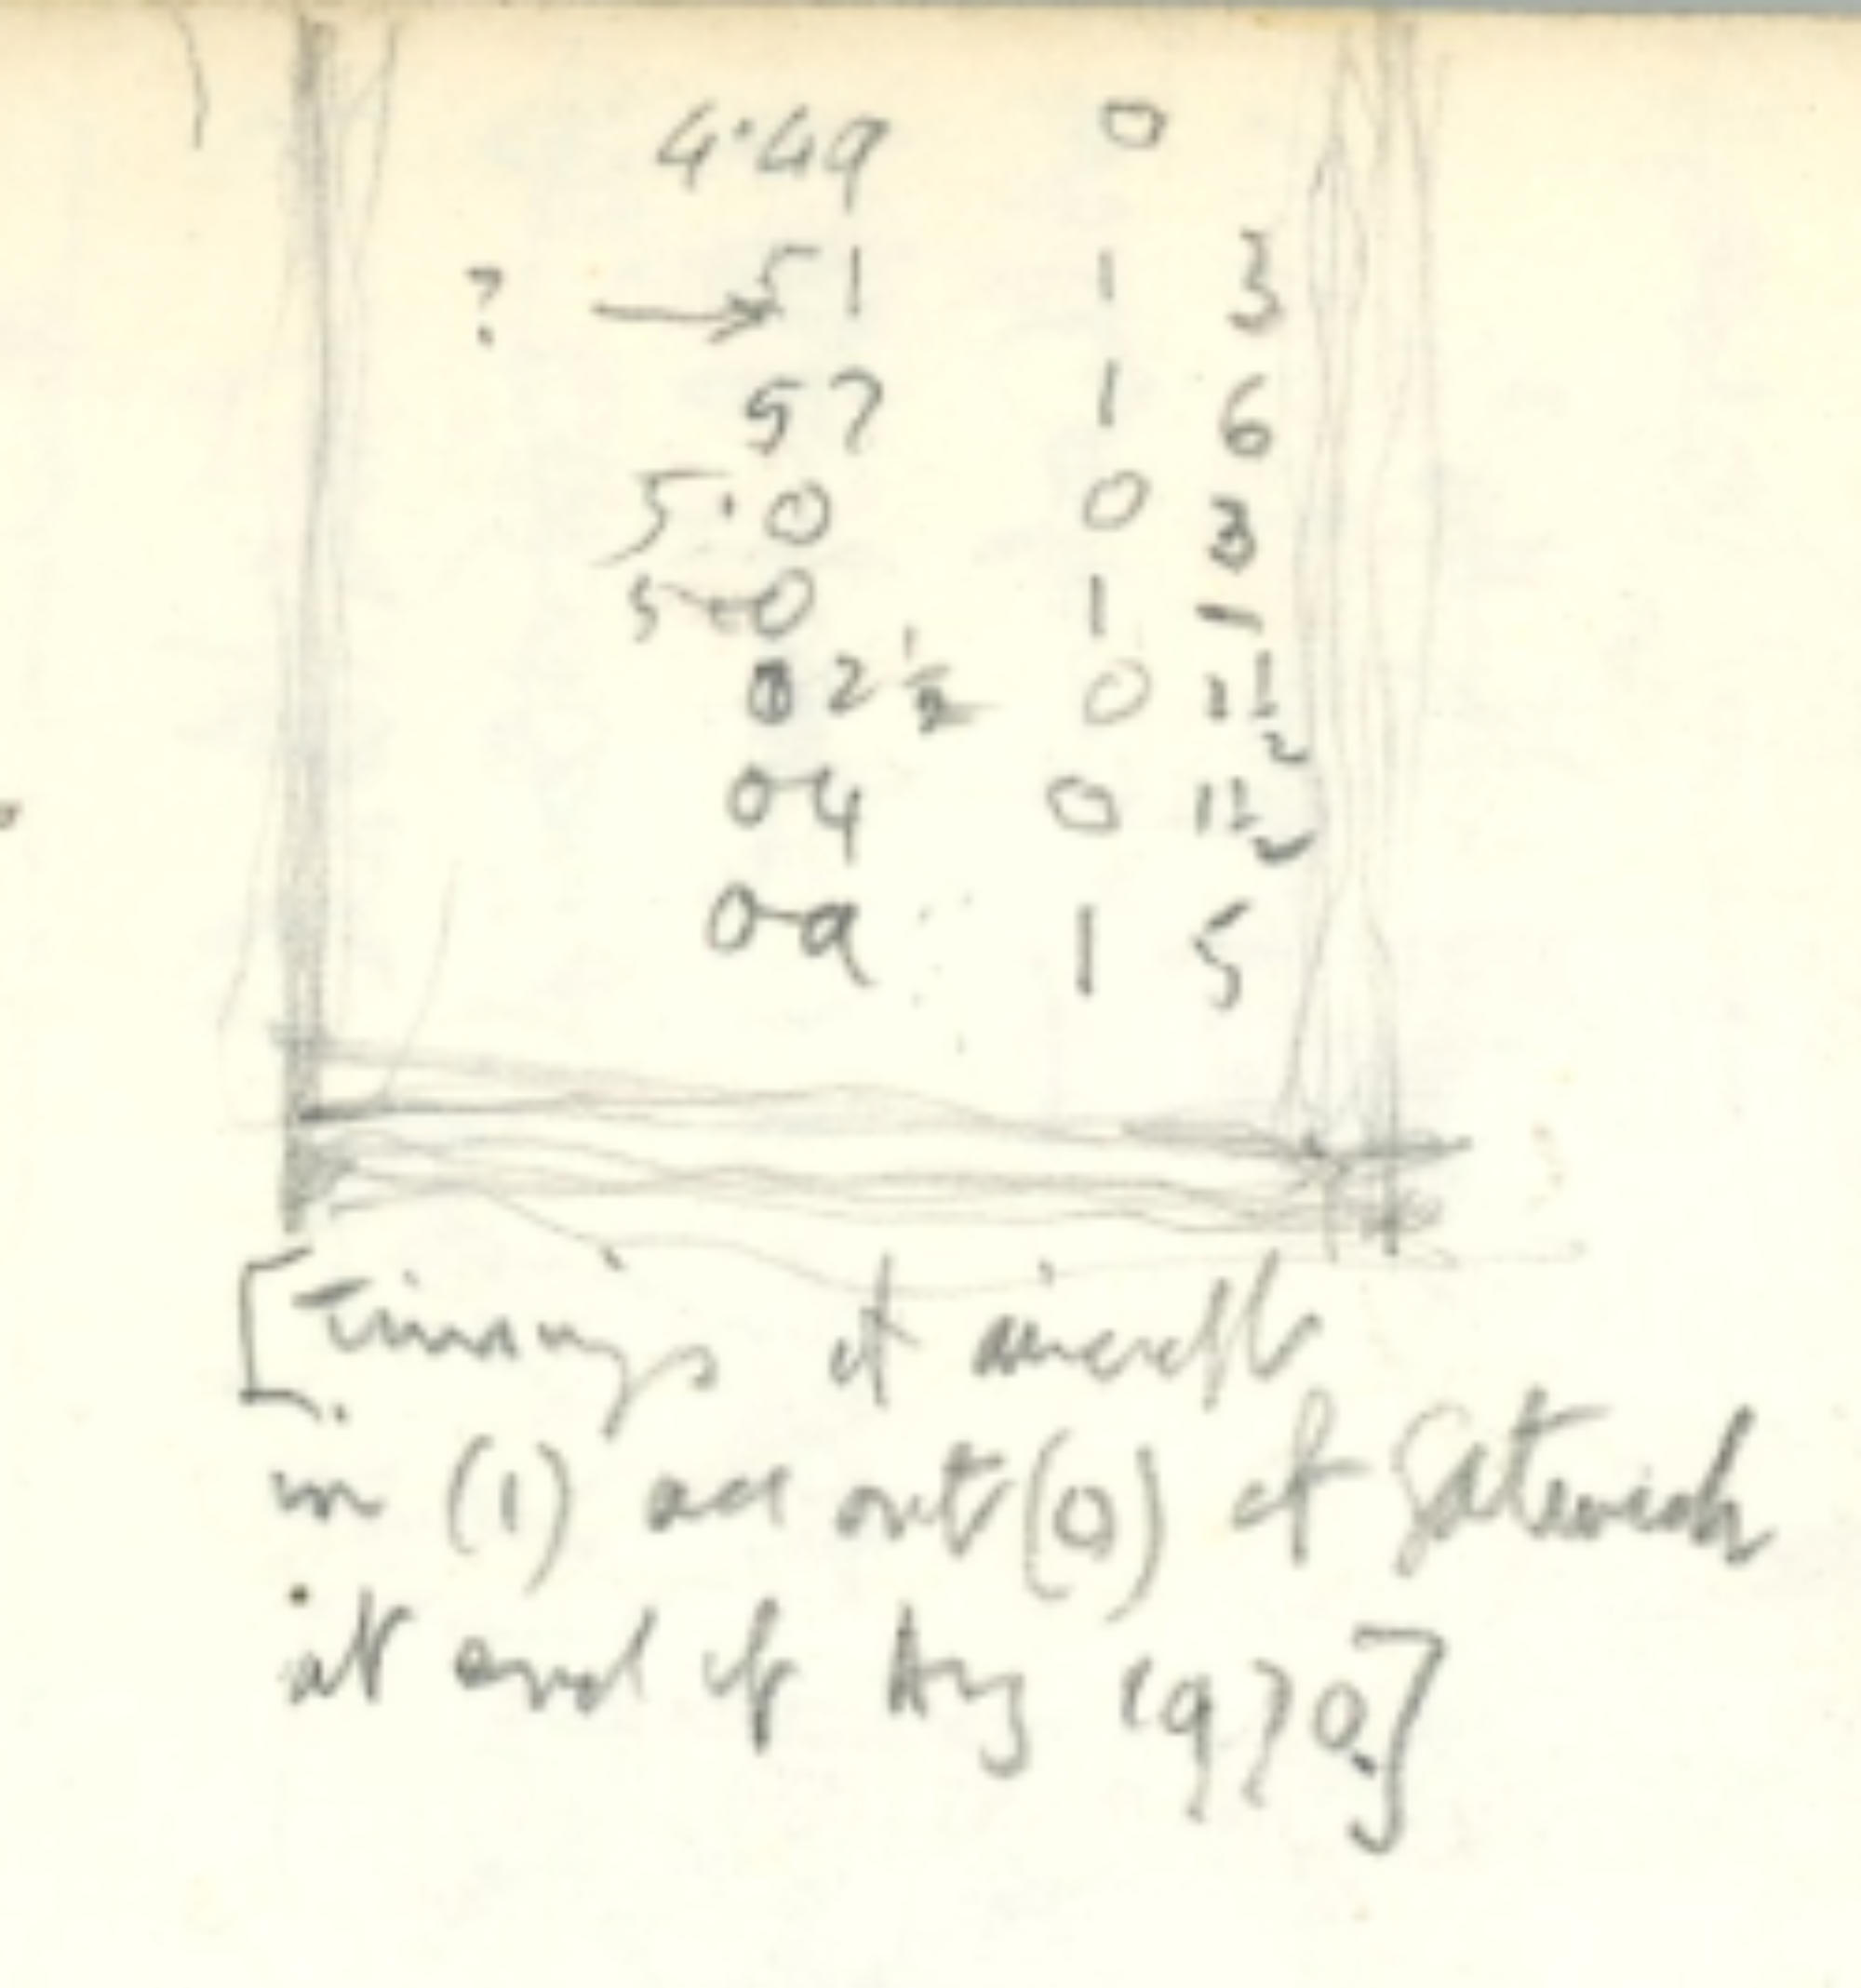 4·49 0
? → 51 1 3
57 1 6
5·0 0 3
5·0 1 –
02½ 0 1½
04 0 1½
09 1 5
[Timings of aircraft
in (1) and out (0) of Gatwick
at end of Aug 1970.]